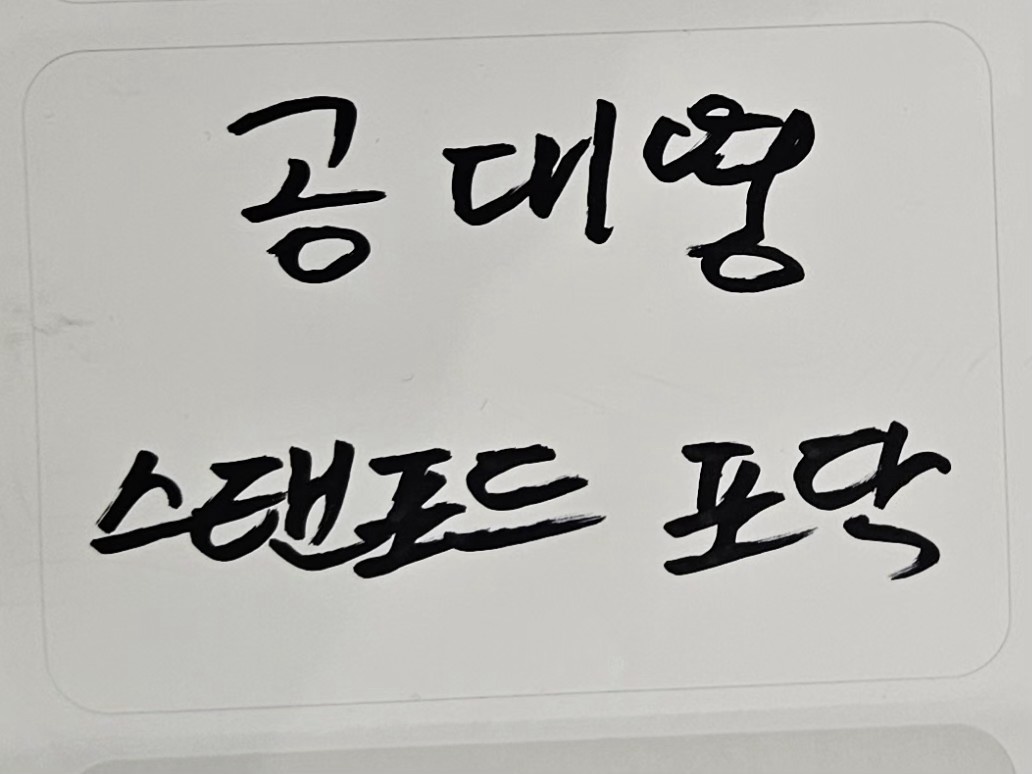 공대형
스탠포드 포닥